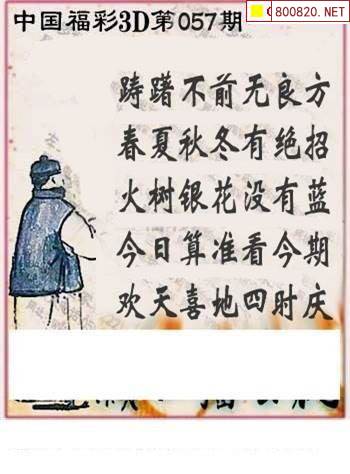 中国福彩3D第057期
800820.NET
踌躇不前无良方
春夏秋冬有绝招
火树银花没有蓝
今日算准看今期
欢天喜地四时庆